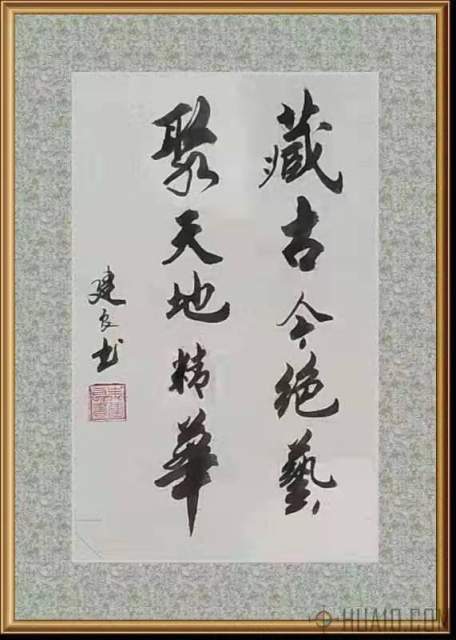 藏古今绝藝
聚天地精華
建良书
HUAIO.COM